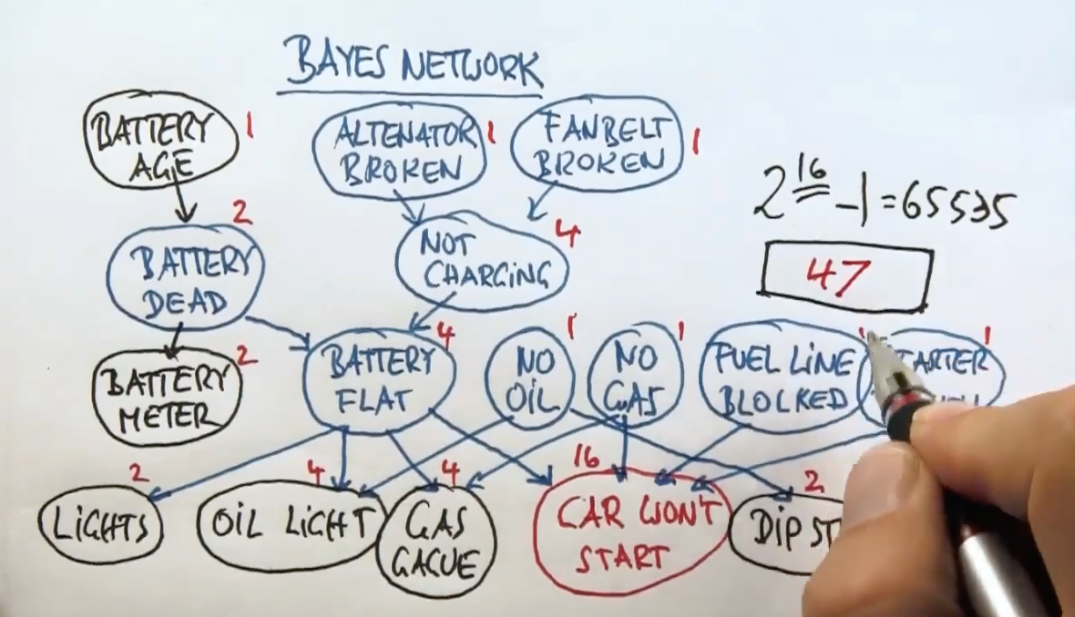 BAYES NETWORK
BATTERY
AGE
1
ALTENATOR
BROKEN
1
FANBELT
BROKEN
1
2^16 - 1 = 65535
47
BATTERY
DEAD
2
NOT
CHARGING
4
BATTERY
METER
2
BATTERY
FLAT
4
NO
OIL
1
NO
GAS
1
FUEL LINE
BLOCKED
1
LIGHTS
2
OIL LIGHT
4
GAS
GAGUE
4
CAR WON'T
START
16
DIP ST
2